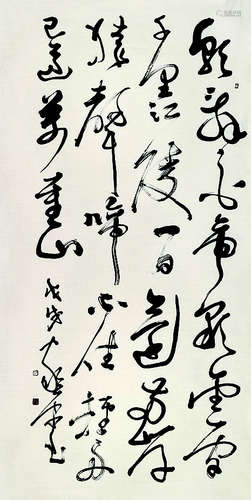 朝辞白帝彩云间
千里江陵一日还两岸
猿声啼不住轻舟
已过万重山
戊戌
书